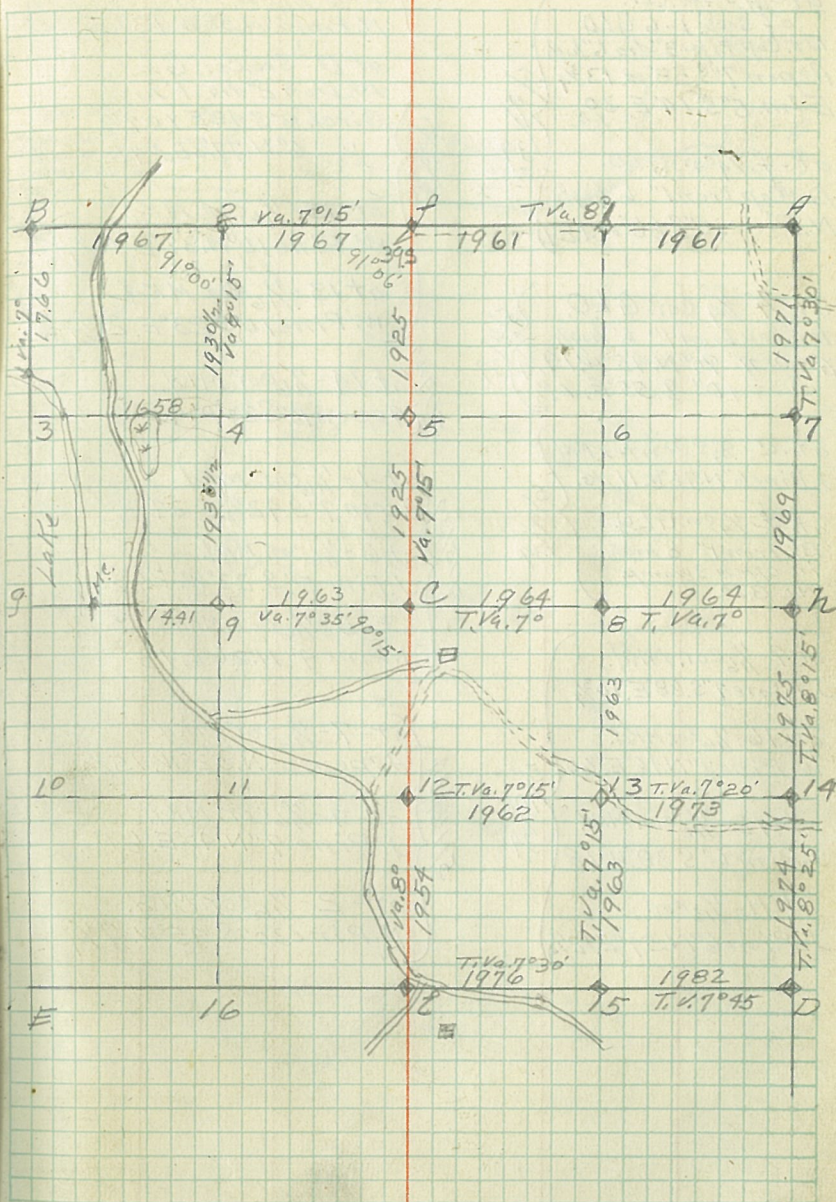 B 2 Va. 7°15' f T Va. 8° 1 A
1967 1967 1961 1961
91°00' 91°06'
Va. 7°
1766
1930½
Va 7°15'
1925
1971
T. Va 7°30'
3 1658 4 5 6 7
Lake
1930½
1925
Va. 7°15'
1969
M.C.
g 1441 9 1963 C 1964 8 1964 h
Va. 7°35' 90°15' T. Va. 7° T. Va. 7°
1963
1975
T. Va. 8°15'
10 11 12 T. Va. 7°15' 13 T. Va. 7°20' 14
1962 1973
Va. 8°
1954
T. Va. 7°15'
1963
1974
T. Va. 8°25'
T. Va. 7°30'
1976 1982
E 16 15 T. V. 7°45 D